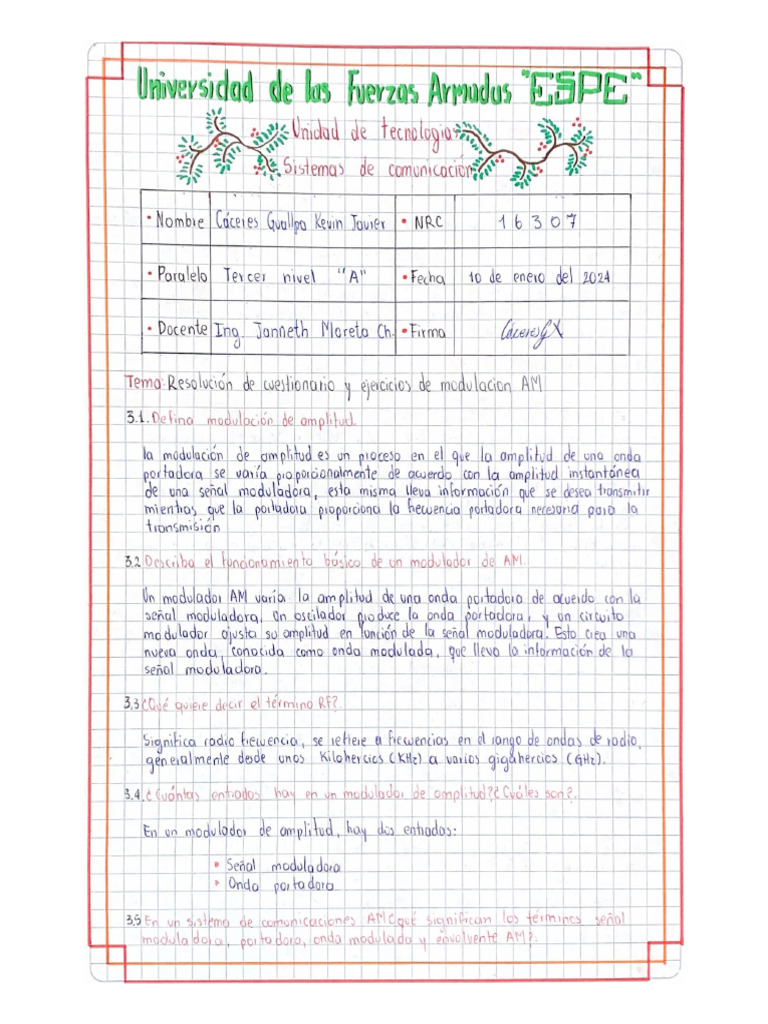 Universidad de las Fuerzas Armadas "ESPE"
Unidad de tecnologias
Sistemas de comunicación
• Nombre Cáceres Guallpa Kevin Javier • NRC 16307
• Paralelo Tercer nivel "A" • Fecha 10 de enero del 2024
• Docente Ing. Janneth Moreta Ch. • Firma CáceresGX
Tema: Resolución de cuestionario y ejercicios de modulacion AM
3.1. Defina modulación de amplitud.
la modulación de amplitud es un proceso en el que la amplitud de una onda
portadora se varía proporcionalmente de acuerdo con la amplitud instantánea
de una señal moduladora, esta misma lleva información que se desea transmitir
mientras que la portadora proporciona la frecuencia portadora necesaria para la
transmisión
3.2 Describa el funcionamiento básico de un modulador de AM.
Un modulador AM varía la amplitud de una onda portadora de acuerdo con la
señal moduladora, Un oscilador produce la onda portadora, y un circuito
modulador ajusta su amplitud en función de la señal moduladora. Esto crea una
nueva onda, conocida como onda modulada, que lleva la información de la
señal moduladora.
3.3 ¿Qué quiere decir el término RF?
Significa radio frecuencia, se refiere a frecuencias en el rango de ondas de radio,
generalmente desde unos Kilohercios (KHz) a varios gigahercios (GHz).
3.4. ¿Cuántas entradas hay en un modulador de amplitud? ¿Cuáles son?.
En un modulador de amplitud, hay dos entradas:
• Señal moduladora
• Onda portadora
3.5 En un sistema de comunicaciones AM ¿qué significan los términos señal
moduladora, portadora, onda modulada y envolvente AM?.